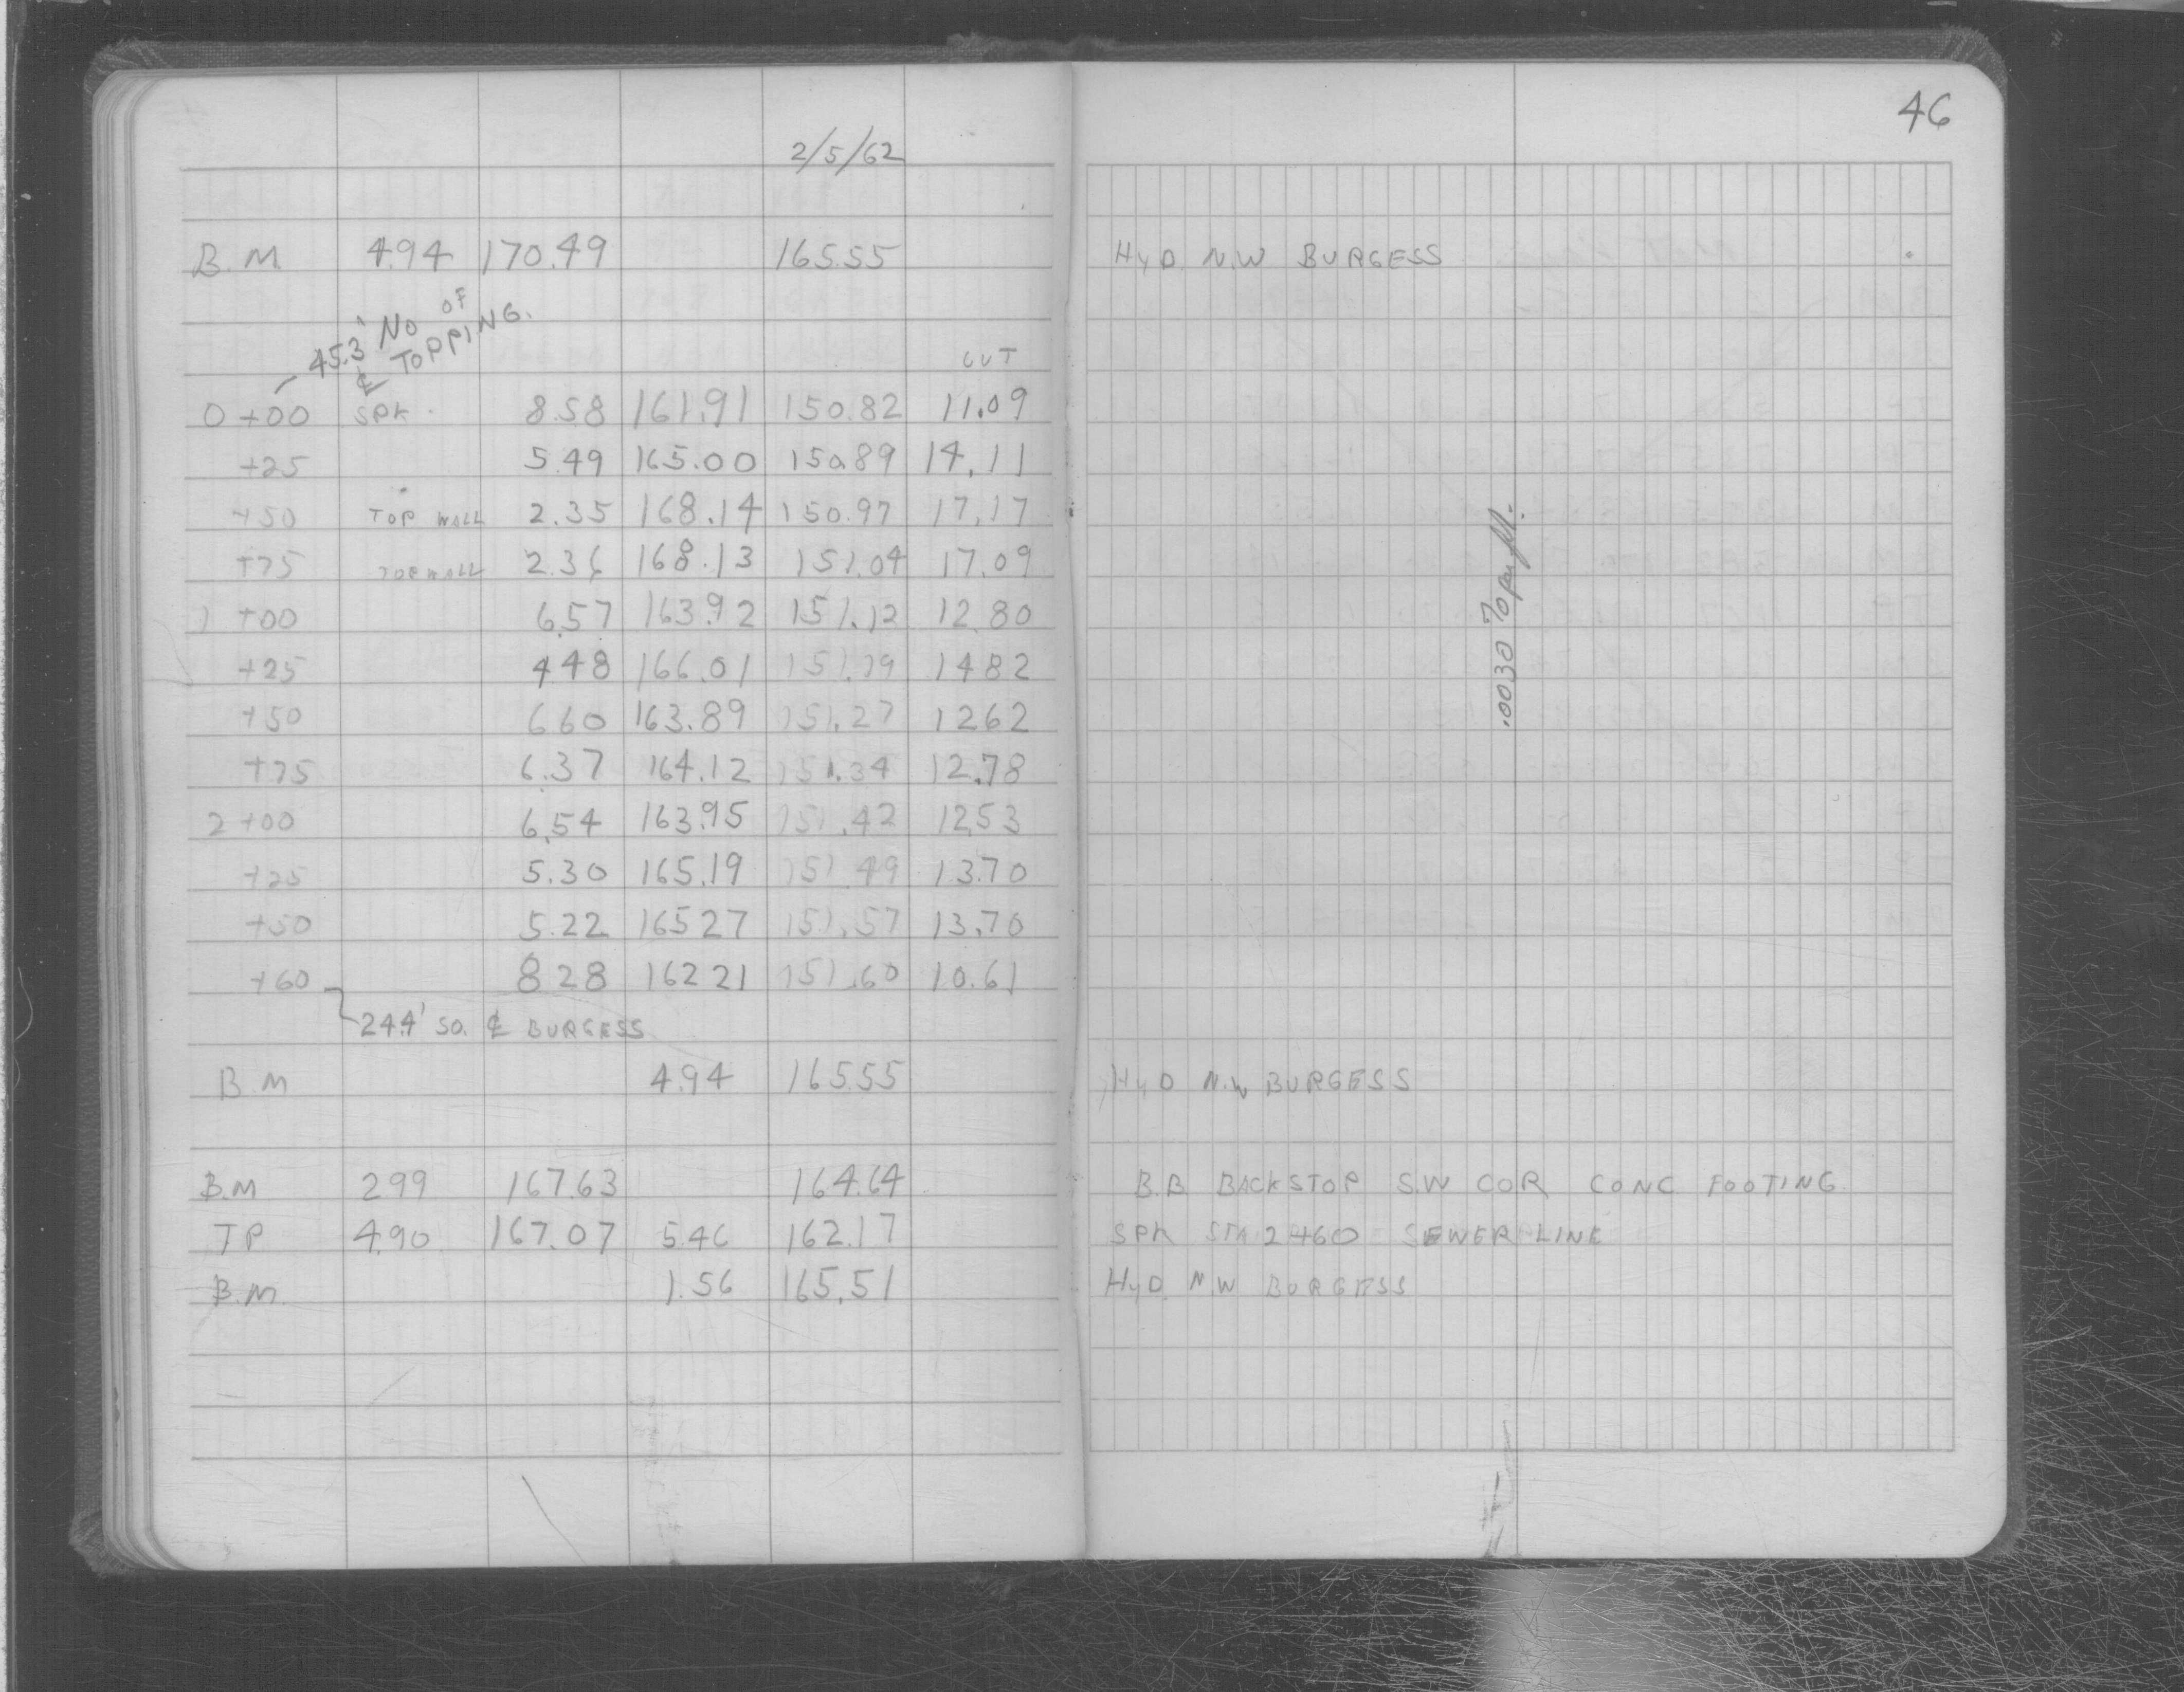 46
2/5/62
B.M. 4.94 170.49 165.55 HYD. N.W BURGESS
45.3' NO OF
℄ TOPPING.
CUT
0+00 SPK. 8.58 161.91 150.82 11.09
+25 5.49 165.00 150.89 14.11
+50 TOP WALL 2.35 168.14 150.97 17.17
+75 TOP WALL 2.36 168.13 151.04 17.09
1+00 6.57 163.92 151.12 12.80
+25 4.48 166.01 151.19 14.82
+50 6.60 163.89 151.27 12.62
+75 6.37 164.12 151.34 12.78
2+00 6.54 163.95 151.42 12.53
+25 5.30 165.19 151.49 13.70
+50 5.22 165.27 151.57 13.70
+60 8.28 162.21 151.60 10.61
24.4' SO. ℄ BURGESS
.0030 % per ft.
B.M 4.94 165.55 HYD N.W BURGESS
B.M 2.99 167.63 164.64 B.B. BACKSTOP S.W COR CONC FOOTING
TP 4.90 167.07 5.46 162.17 SPK STA 2+60 SEWER LINE
B.M. 1.56 165.51 HYD. N.W BURGESS